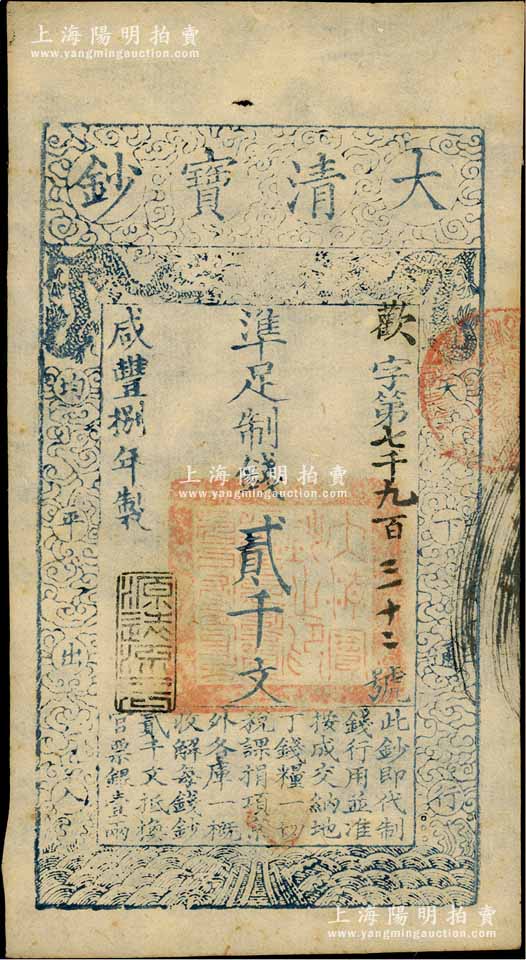 上海陽明拍賣
www.yangmingauction.com
大清寶鈔
天下通行
歡字第七千九百三十二號
準足制錢貳千文
咸豐捌年製
均平出入
此鈔即代制
錢行用並准
按成交納地
丁錢糧一切
稅課捐項京
外各庫一概
收解每錢鈔
貳千文抵換
官票銀壹兩
上海陽明拍賣
www.yangmingauction.com
上海陽明拍賣
www.yangmingauction.com